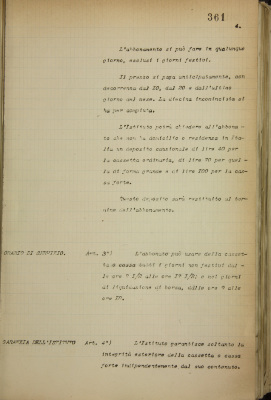 361
4.
L'abbonamento si può fare in qualunque
giorno, esclusi i giorni festivi.
Il prezzo si paga anticipatamente, con
decorrenza dal 10, dal 20 e dall'ultimo
giorno del mese. La diecina incominciata si
ha per compiuta.
L'Istituto potrà chiedere all'abbona-
to che non ha domicilio o residenza in Ita-
lia un deposito cauzionale di lire 50 per
la cassetta ordinaria, di lire 70 per quel-
la di forma grande e di lire 100 per la cas-
sa forte.
Questo deposito sarà restituito al ter-
mine dell'abbonamento.
ORARIO DI SERVIZIO. Art. 3°) L'abbonato può usare della casset-
ta o cassa tutti i giorni non festivi dal-
le ore 9 1/2 alle ore 15 1/2; e nei giorni
di liquidazione di borsa, dalle ore 9 alle
ore
GARANZIA DELL'ISTITUTO Art. 4°) L'Istituto garantisce soltanto la
integrità esteriore della cassetta o cassa
forte indipendentemente dal suo contenuto.